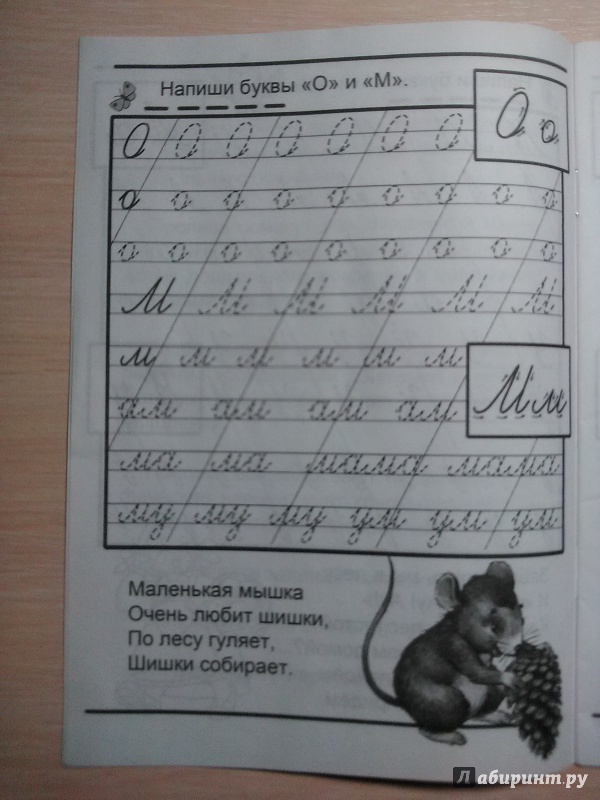 Напиши буквы «О» и «М».
О О О О О О О
О о
о о о о о о о о о
о о о о о о о о о
М М М М М М
м м м м м м
М м
ам ам ам ам
ма ма мама мама
му му му ум ум ум
Маленькая мышка
Очень любит шишки,
По лесу гуляет,
Шишки собирает.
Лабиринт.ру